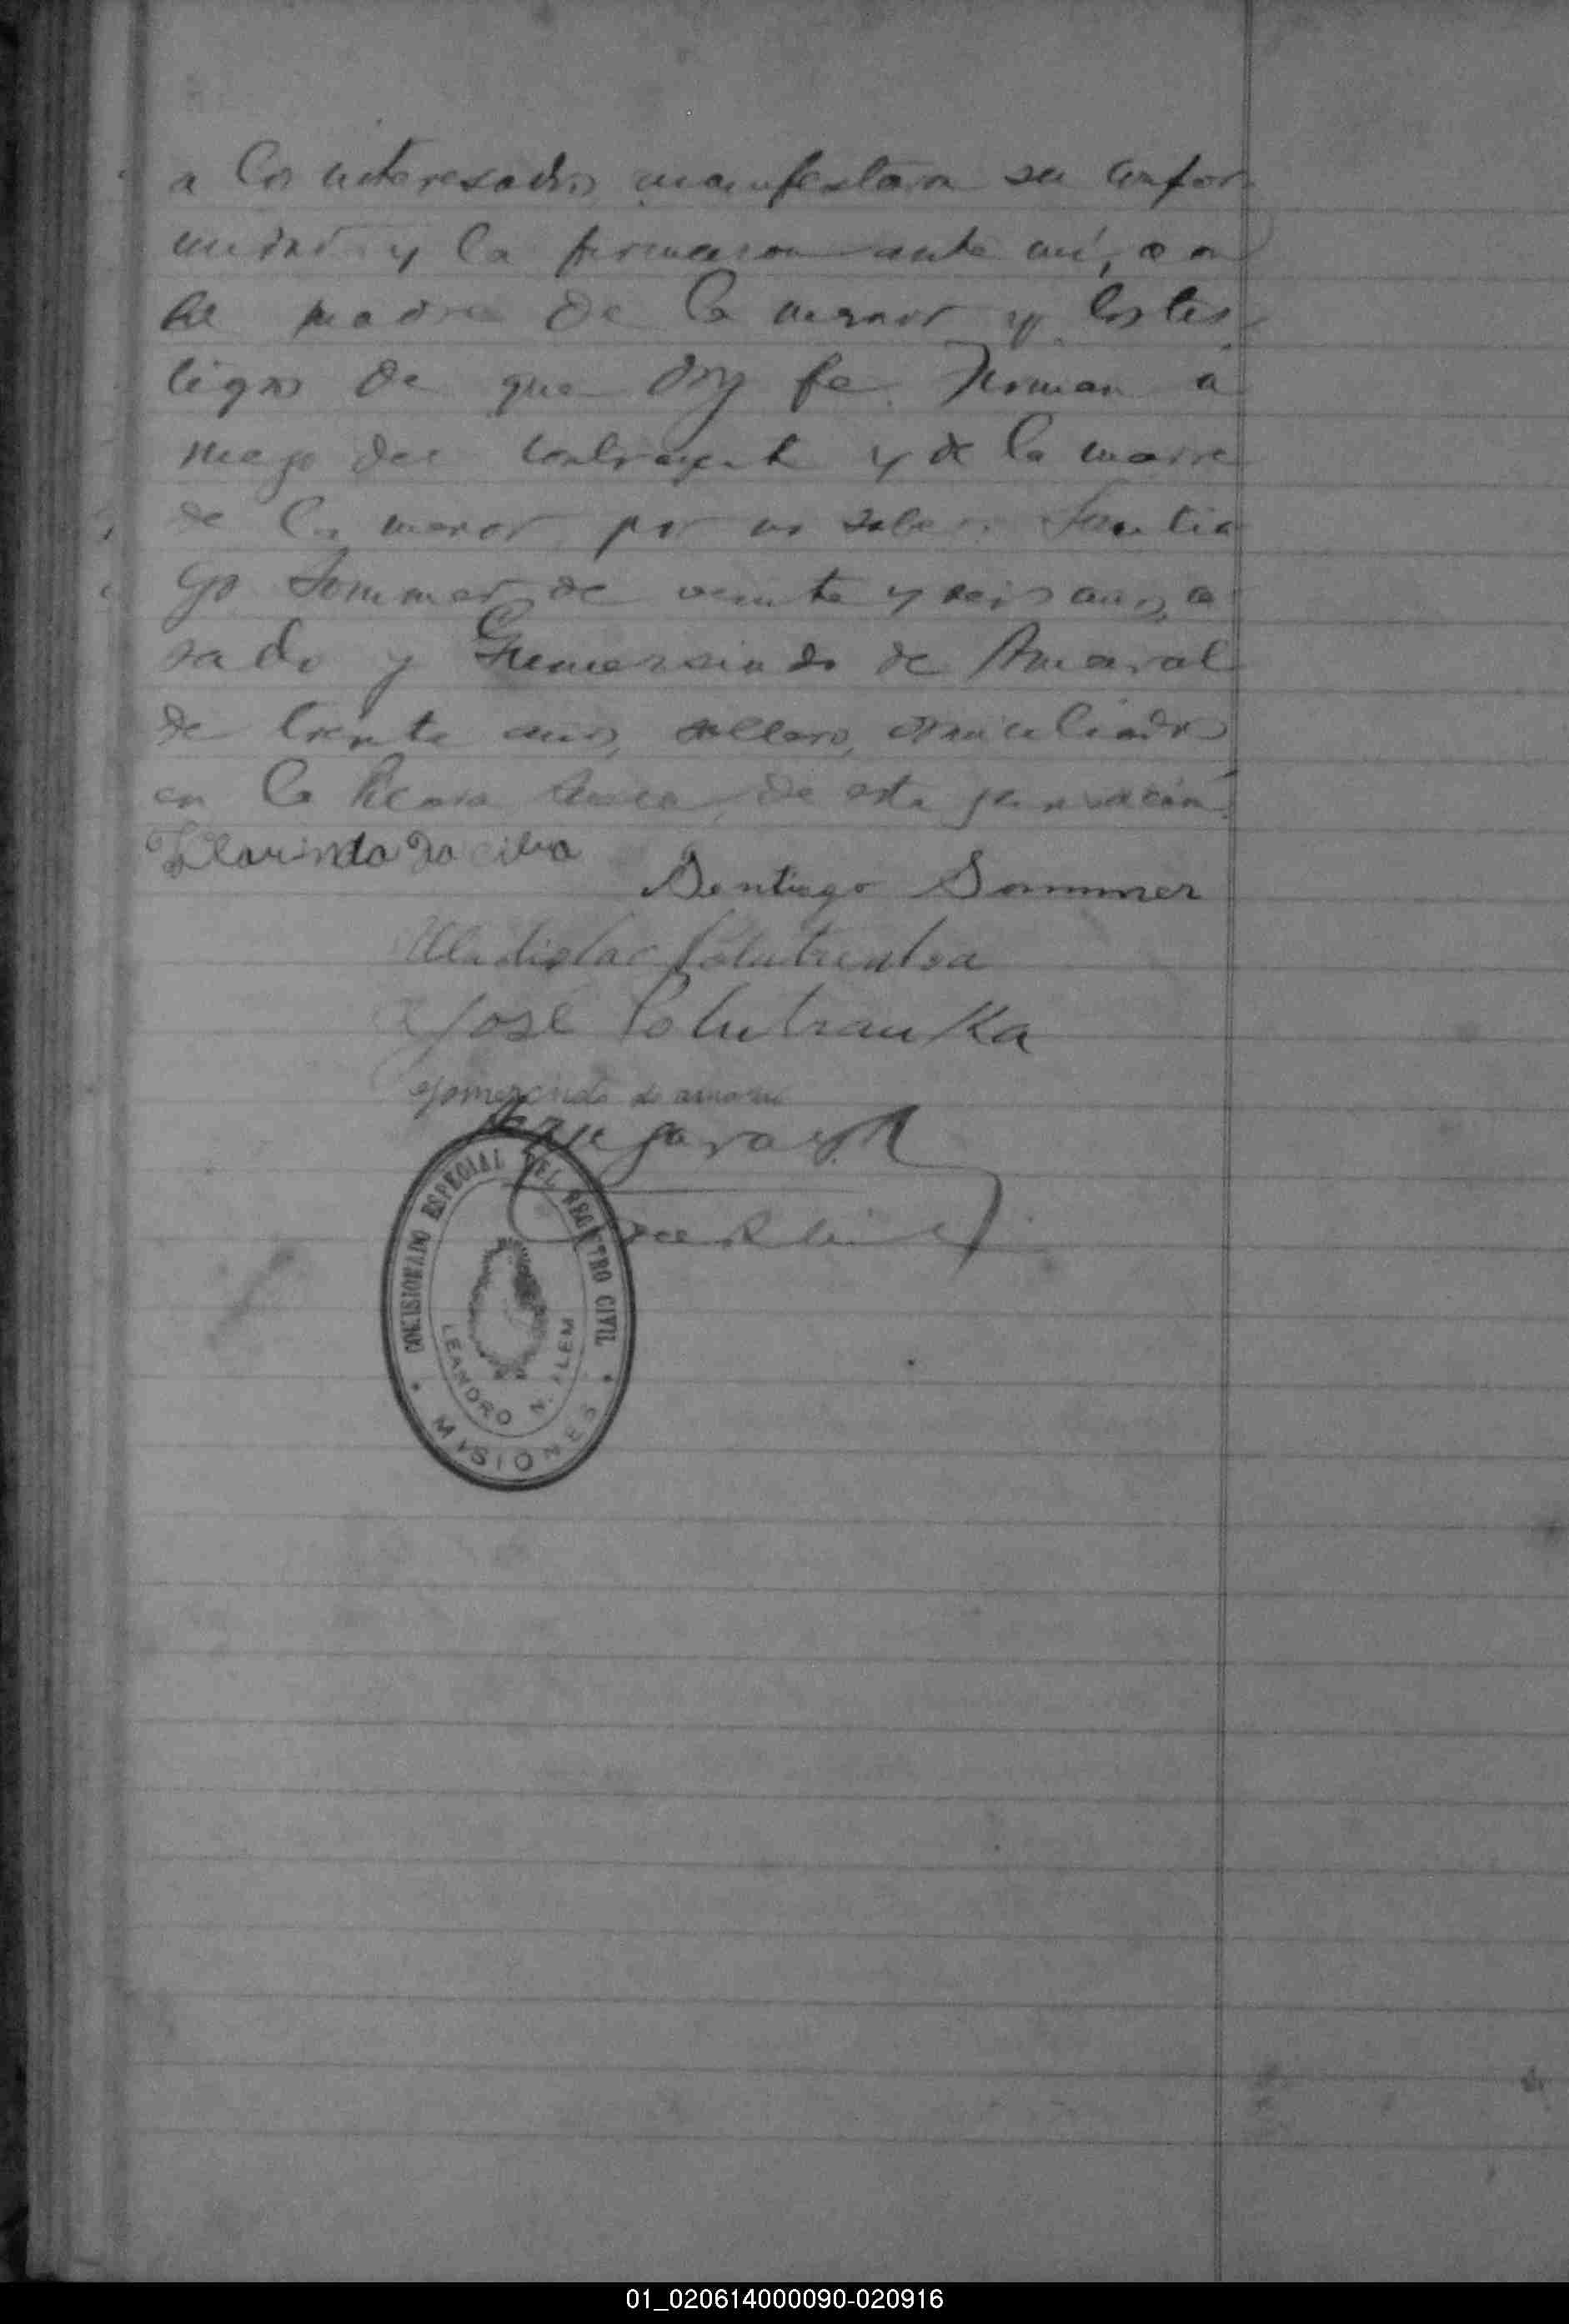 a los interesados, manifestaron su confor
midad y la firmaron ante mí, con
la madre de la menor y los tes
tigos de que doy fe. Firman á
ruego del contrayente y de la madre
de la menor por no saber: Santia
go Sommer, de veinte y seis años, ca
sado y Gumersindo de Amaral
de treinta años, soltero, domiciliados
en la de esta jurisdicción.
Clarinda da cilva
Santiago Sommer
Uladislac
José Polutranka
gomercindo de amaral
COMISIONADO ESPECIAL DEL REGISTRO CIVIL
LEANDRO N. ALEM
MISIONES
01_020614000090-020916